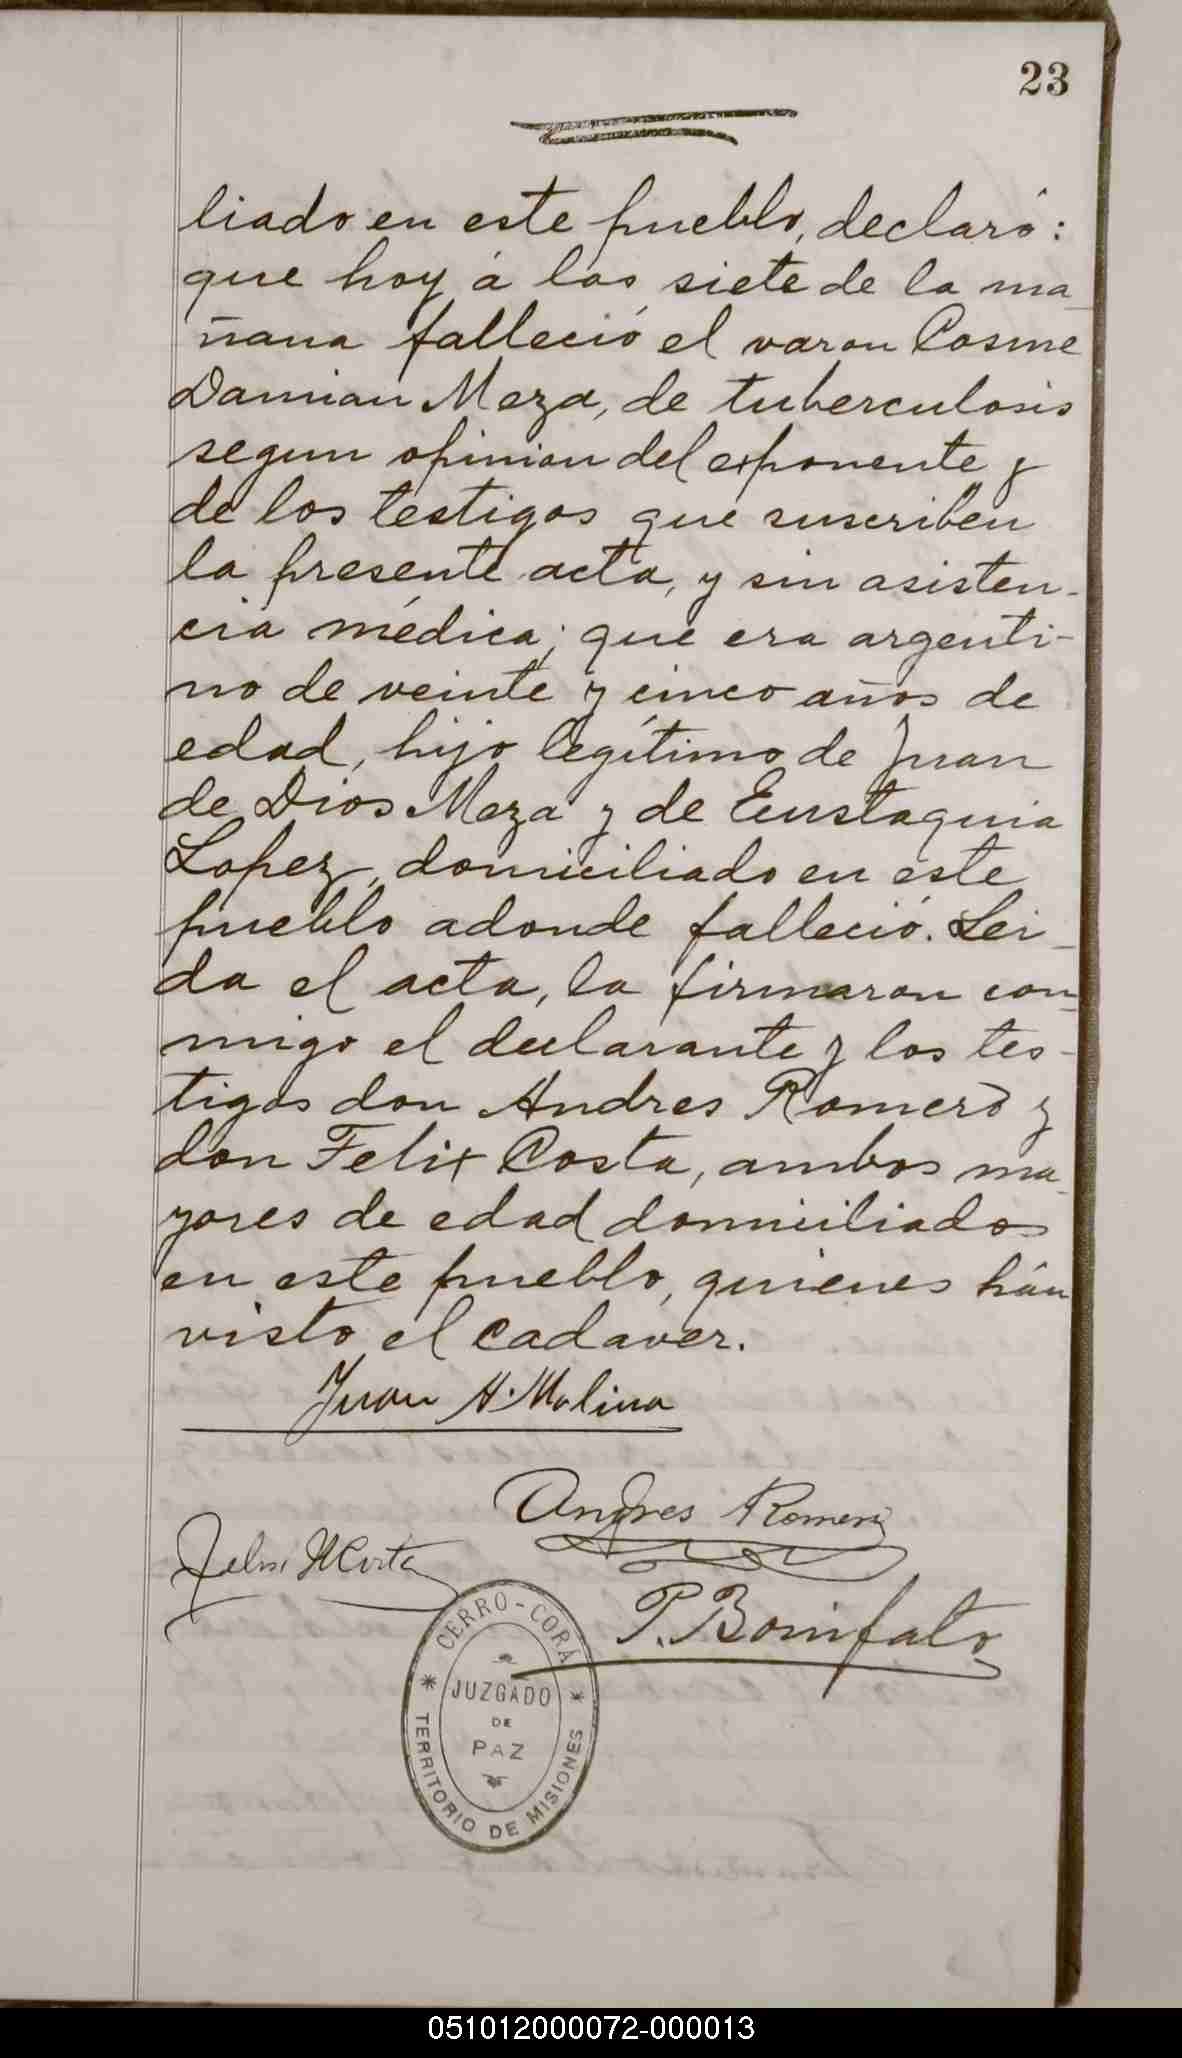 23
liado en este pueblo, declaró:
que hoy á las siete de la ma
ñana falleció el varon Cosme
Damian Meza, de tuberculosis
segun opinion del exponente y
de los testigos que suscriben
la presente acta, y sin asisten-
cia médica; que era argenti-
no de veinte y cinco años de
edad, hijo legítimo de Juan
de Dios Meza y de Eustaquia
Lopez, domiciliado en este
pueblo adonde falleció. Lei-
da el acta, la firmaron con-
migo el declarante y los tes-
tigos don Andres Romero y
don Felix Costa, ambos ma-
yores de edad domiciliados
en este pueblo, quienes hán
visto el cadaver.
Juan A. Molina
Andres Romero
P. Bonifato
CERRO-CORÁ
JUZGADO
DE
PAZ
TERRITORIO DE MISIONES
051012000072-000013